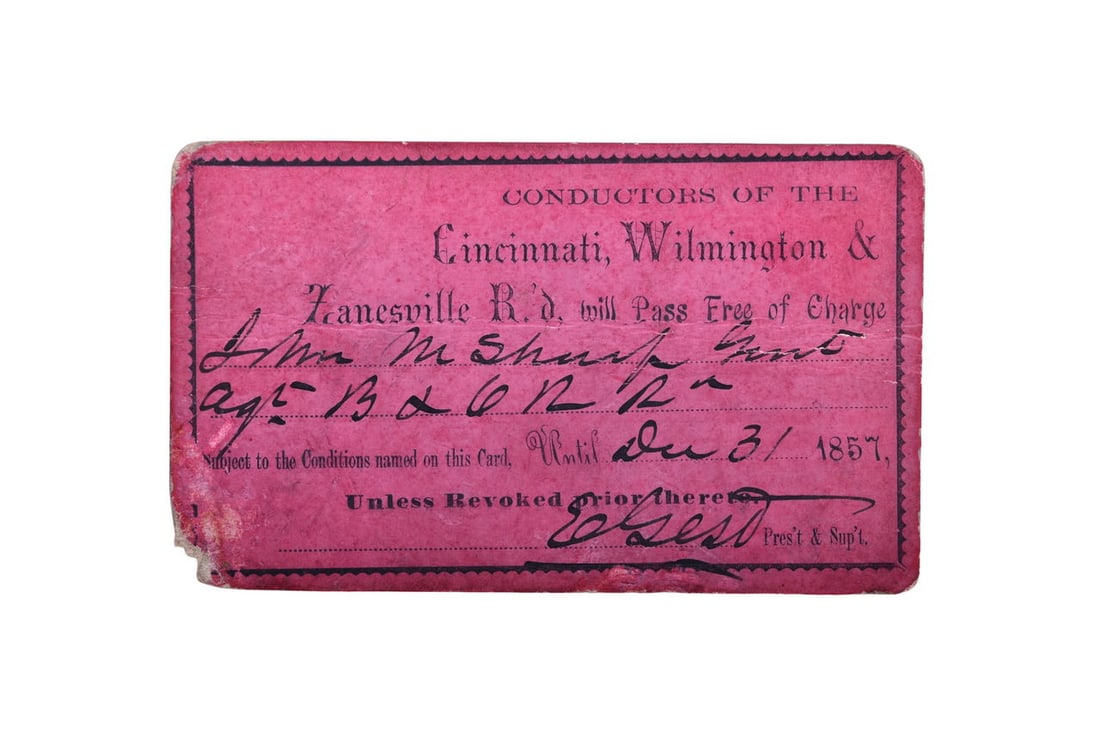 CONDUCTORS OF THE
Cincinnati, Wilmington &
Zanesville R.'d, will Pass Free of Charge
John M Sharp Genl
Agt B & O R R
Subject to the Conditions named on this Card. Until Dec 31 1857,
Unless Revoked prior thereto.
E Gest Pres't & Sup't.